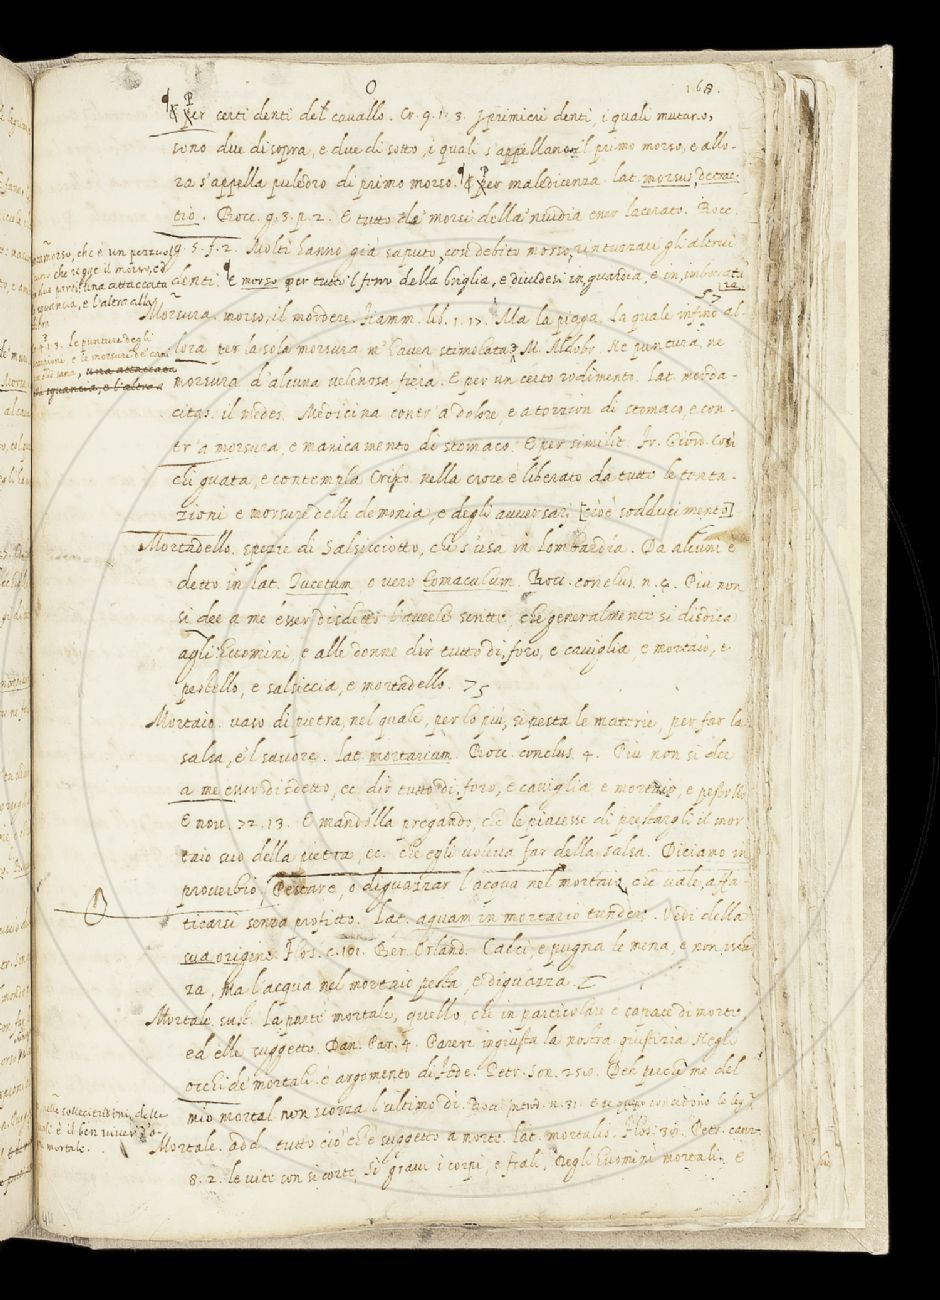 O
168.
Per certi denti del cavallo. Cr. 9. 1. 3. I primieri denti, i quali mutano,
sono due di sopra, e due di sotto, i quali s'appellano il primo morso, e allo-
ra s'appella puledro di primo morso. Per maledicenza. lat. morsus, detrac-
tio. Bocc. g. 3. p. 2. E tutto da' morsi della 'nvidia esser lacerato. Bocc.
g. 5. f. 2. Molti hanno già saputo, con debito morso, rintuzzare gli altrui
denti. E morso per tutto 'l ferro della briglia, e dividesi in guardia, e in imboccatu
ra.
morso, che è un pezzuol
che regge il morso, ed
due parti, una attaccata
sguancia, e l'altra alla
Morsura. morso, il mordere. Fiamm. lib. 1. 17. Ma la piaga, la quale infino al-
lora per la sola morsura m'havea stimolata. M. Aldobr. Ne puntura, ne
le punture degli
e le morsure de' cani
una attaccata
sguancia, e l'altra
morsura d'alcuna velenosa fiera. E per un certo rodimento. lat. morda-
citas. il medes. Medicina contr' a dolore, e a torzion di stomaco, e con-
tr' a morsura, e manicamento di stomaco. E per similit. Fr. Giord. Così
chi guata, e contempla Cristo nella croce è liberato da tutte le tenta-
zioni e morsure delle demonia, e degli avversari [cioè sodducimento]
Mortadello. spezie di Salsicciotto, che s'usa in Lombardia. Da alcuni è
detto in lat. Tucetum o vero tomaculum. Bocc. conclus. n. 4. Più non
si dee a me esser disdetto l'averle scritte, che generalmente si disdica
agli Huomini, e alle donne dir tutto dì, foro, e caviglia, e mortaio, e
pestello, e salsiccia, e mortadello. 75
Mortaio. vaso di pietra, nel quale, per lo più, si pesta le materie, per far la
salsa, e 'l savore. lat. mortarium. Bocc. conclus. 4. Più non si dee
a me esser disdetto, ec. dir tutto dì, foro, e caviglia e mortaio, e pestello
E nov. 72. 13. E mandolla pregando, che le piacesse di prestargli il mor
taio suo della pietra, ec. che egli voleva far della salsa. Diciamo in
proverbio, Pestare, o diguazzar l'acqua nel mortaio, che vale, affa-
ticarsi senza profitto. Lat. aquam in mortario tundere. Vedi della
sua origine. Flos. c. 101. Ber. Orland. Calci, e pugna le mena, e non
za, Ma l'acqua nel mortaio pesta, e diguazza.
Mortale. sust. la parte mortale, quello, che in particolare è capace di morte
ed è le suggetto. Dan. Par. 4. Parere ingiusta la nostra giustizia Negli
occhi de' mortali è argomento di fede. Petr. Son. 250. Deh perchè me del
mio mortal non scorza l'ultimo dì. Bocc. introd. n. 31.
sollecitissimi delle
è il ben viver d'o-
mortale.
Mortale. add. tutto ciò che è suggetto a morte. lat. mortalis. Petr. canz.
8. 2. le vite son sì corte, Sì gravi i corpi, e frali, Negli Huomini mortali. E